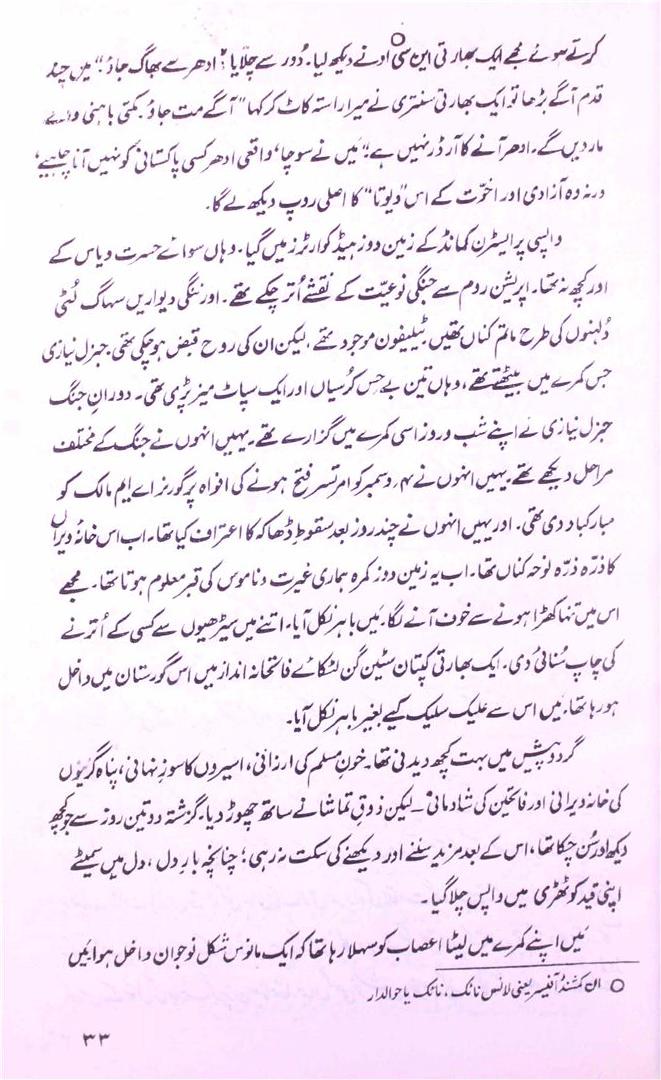 کرتے ہوئے مجھے ایک بھارتی این سی او نے دیکھ لیا۔ دُور سے چلّایا؛ "ادھر سے بھاگ جاؤ۔" میں چند
قدم آگے بڑھا تو ایک بھارتی سنتری نے میرا راستہ کاٹ کر کہا "آگے مت جاؤ۔ مکتی باہنی والے
مار دیں گے۔ ادھر آنے کا آرڈر نہیں ہے۔" میں نے سوچا، واقعی ادھر کسی پاکستانی کو نہیں آنا چاہیے،
ورنہ وہ آزادی اور اخوّت کے اس "دیوتا" کا اصلی روپ دیکھ لے گا۔
واپسی پر ایسٹرن کمانڈ کے زمین دوز ہیڈ کوارٹرز میں گیا۔ وہاں سوائے حسرت و یاس کے
اور کچھ نہ تھا۔ اپریشن روم سے جنگی نوعیّت کے نقشے اُتر چکے تھے۔ اور ننگی دیواریں سہاگ لُٹی
دُلہنوں کی طرح ماتم کناں تھیں۔ ٹیلیفون موجود تھے، لیکن ان کی روح قبض ہو چکی تھی۔ جنرل نیازی
جس کمرے میں بیٹھتے تھے، وہاں تین بے حِس کُرسیاں اور ایک سپاٹ میز پڑی تھی۔ دورانِ جنگ
جنرل نیازی نے اپنے شب و روز اسی کمرے میں گزارے تھے۔ یہیں انہوں نے جنگ کے مختلف
مراحل دیکھے تھے۔ یہیں انہوں نے ۴؍ دسمبر کو امرتسر فتح ہونے کی افواہ پر گورنر اے ایم مالک کو
مبارکباد دی تھی۔ اور یہیں انہوں نے چند روز بعد سقوطِ ڈھاکہ کا اعتراف کیا تھا۔ اب اس خانۂ ویراں
کا ذرّہ ذرّہ نوحہ کناں تھا۔ اب یہ زمین دوز کمرہ ہماری غیرت و ناموس کی قبر معلوم ہوتا تھا۔ مجھے
اس میں تنہا کھڑا ہونے سے خوف آنے لگا۔ میں باہر نکل آیا۔ اتنے میں سیڑھیوں سے کسی کے اُترنے
کی چاپ سُنائی دی۔ ایک بھارتی کپتان سٹین گن لٹکائے فاتحانہ انداز میں اس گورستان میں داخل
ہو رہا تھا۔ میں اس سے علیک سلیک کیے بغیر باہر نکل آیا۔
گرد و پیش میں بہت کچھ دیدنی تھا۔ خونِ مسلم کی ارزانی، اسیروں کا سوزِ نہانی، پناہ گزیوں
کی خانہ ویرانی اور فاتحین کی شادمانی ــ لیکن ذوقِ تماشا نے ساتھ چھوڑ دیا۔ گزشتہ دو تین روز سے جو کچھ
دیکھ اور سُن چکا تھا، اس کے بعد مزید سننے اور دیکھنے کی سکت نہ رہی؛ چنانچہ بارِ دل، دل میں سمیٹے
اپنی قید کوٹھڑی میں واپس چلا گیا۔
میں اپنے کمرے میں لیٹا اعصاب کو سہلا رہا تھا کہ ایک مانوس شکل نوجوان داخل ہوا، میں
O ان کمشنڈ آفیسر یعنی لانس نائک، نائک یا حوالدار
۳۳